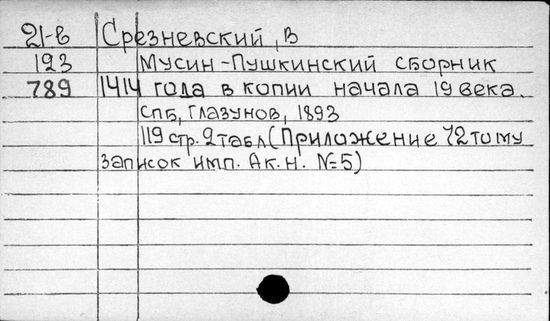 21-в Срезневский, В
193 Мусин-Пушкинский сборник
789 1414 года в копии начала 19 века.
СПБ, Глазунов, 1893
119 стр. 2 табл (Приложение 72 тому
записок имп. Ак. н. №5)